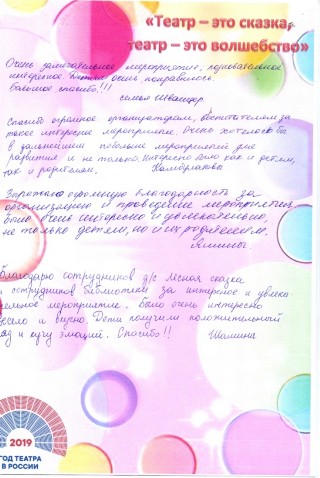 «Театр – это сказка,
театр – это волшебство»
Очень замечательное мероприятие, познавательное
интересное. Детям очень понравилось.
Большое спасибо!!!
семья
Спасибо огромное организаторам, воспитателям за
такое интересное мероприятие. Очень хотелось бы
в дальнейшем побольше мероприятий для
развития и не только. Интересно было как и детям,
так и родителям.
Выражаю огромную благодарность за
организацию и проведение мероприятия,
было очень интересно и увлекательно,
не только детям, но и их родителям.
Благодарю сотрудников д/с Лесная сказка
и сотрудников библиотеки за интересное и увлека-
тельное мероприятие. Было очень интересно
весело и вкусно. Дети получили положительный
и кучу эмоций. Спасибо!!! Шамина
2019
ГОД ТЕАТРА
В РОССИИ